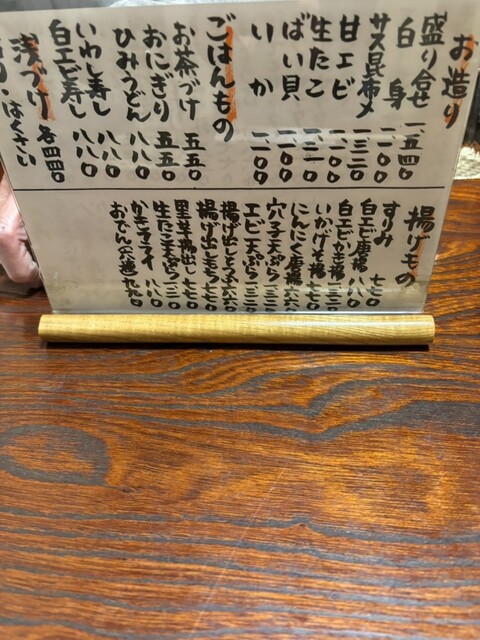 お造り
盛り合せ 一、五四〇
白身 一一〇〇
サス昆布〆 一三二〇
甘エビ 一一〇〇
生たこ 一二一〇
ばい貝 一一〇〇
いか 一一〇〇
ごはんもの
お茶づけ 五五〇
おにぎり 五五〇
ひみうどん 八八〇
いわし寿し 八八〇
白エビ寿し 八八〇
浅づけ 各四四〇
はくさい
揚げもの
すりみ 七七〇
白エビ唐揚 八八〇
白エビかき揚
いかげそ揚 七七〇
にんにく唐揚
穴子天ぷら
エビ天ぷら
揚げ出しとうふ
揚げ出しもち 七七〇
里芋揚出し 七七〇
生たこ天ぷら
かきフライ
おでん